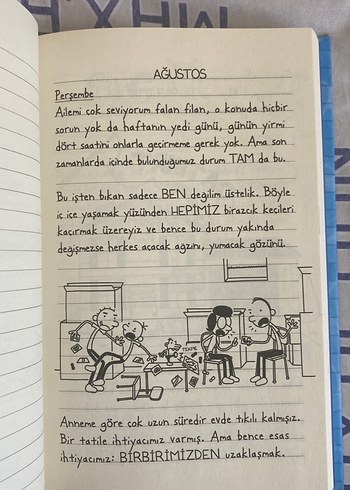 AĞUSTOS
Perşembe
Ailemi çok seviyorum falan filan, o konuda hiçbir
sorun yok da haftanın yedi günü, günün yirmi
dört saatini onlarla geçirmeme gerek yok. Ama son
zamanlarda içinde bulunduğumuz durum TAM da bu.
Bu işten bıkan sadece BEN değilim üstelik. Böyle
iç içe yaşamak yüzünden HEPİMİZ birazcık keçileri
kaçırmak üzereyiz ve bence bu durum yakında
değişmezse herkes açacak ağzını, yumacak gözünü.
TEKME
Anneme göre çok uzun süredir evde tıkılı kalmışız.
Bir tatile ihtiyacımız varmış. Ama bence esas
ihtiyacımız: BİRBİRİMİZDEN uzaklaşmak.